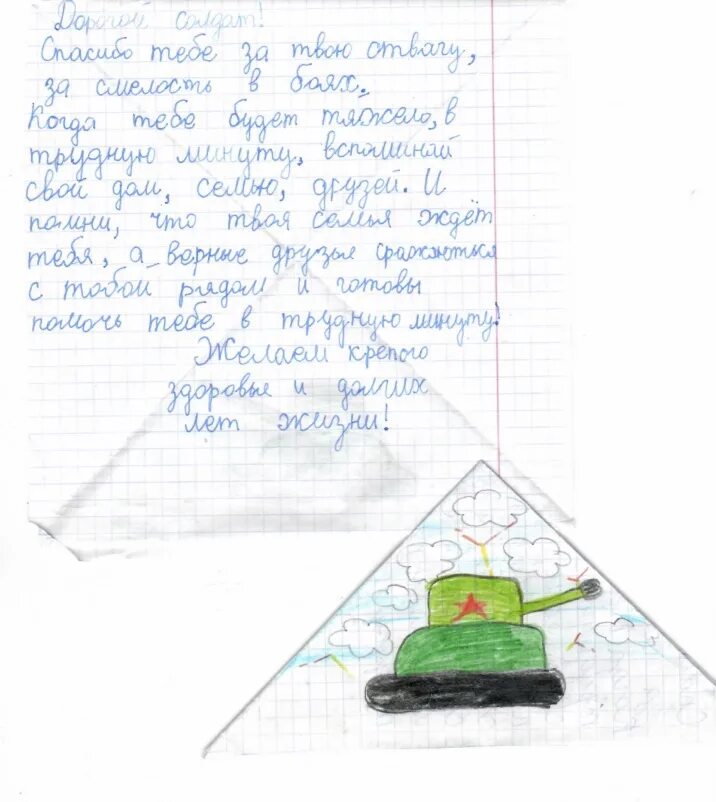 Дорогой солдат!
Спасибо тебе за твою отвагу,
за смелость в боях.
Когда тебе будет тяжело, в
трудную минуту, вспоминай
свой дом, семью, друзей. И
помни, что твоя семья ждёт
тебя, а верные друзья сражаються
с тобой рядом и готовы
помочь тебе в трудную минуту!
Желаем крепого
здоровье и долгих
лет жизни!